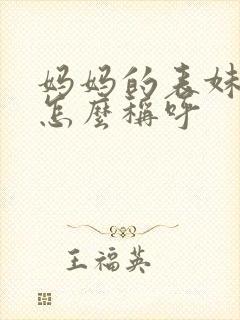 妈妈的表妹
怎麼稱呼
王福英